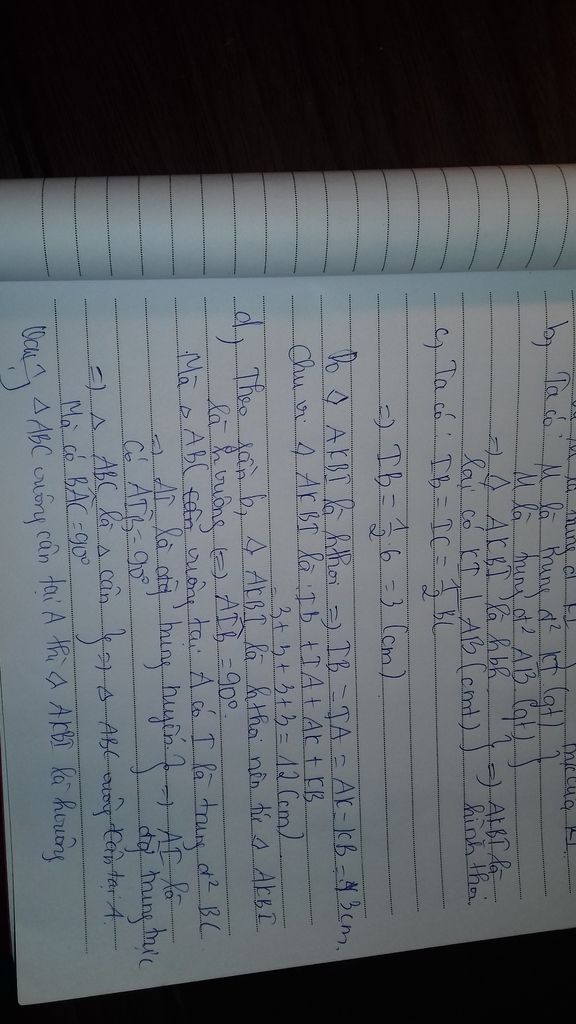 b) Ta có: M là trung đ² KI (gt) }
M là trung đ² AB (gt) }
=> ◊ AKBI là hbh }
lại có KI ⊥ AB (cmt) } => AKBI là hình thoi
c) Ta có: IB = IC = 1/2 BC
=> IB = 1/2 . 6 = 3 (cm)
Do ◊ AKBI là hthoi => IB = IA = AK = KB = 3cm.
Chu vi ◊ AKBI là: IB + IA + AK + KB
= 3 + 3 + 3 + 3 = 12 (cm)
d) Theo phần b, ◊ AKBI là hthoi nên để ◊ AKBI
là h vuông <=> AIB = 90°.
Mà Δ ABC vuông tại A có I là trung đ² BC
=> AI là đg trung tuyến } => AI là đg trung trực
Có AIB = 90°
=> Δ ABC là Δ cân } => Δ ABC vuông cân tại A.
Mà có BAC = 90°
Vậy Δ ABC vuông cân tại A thì ◊ AKBI là hvuông